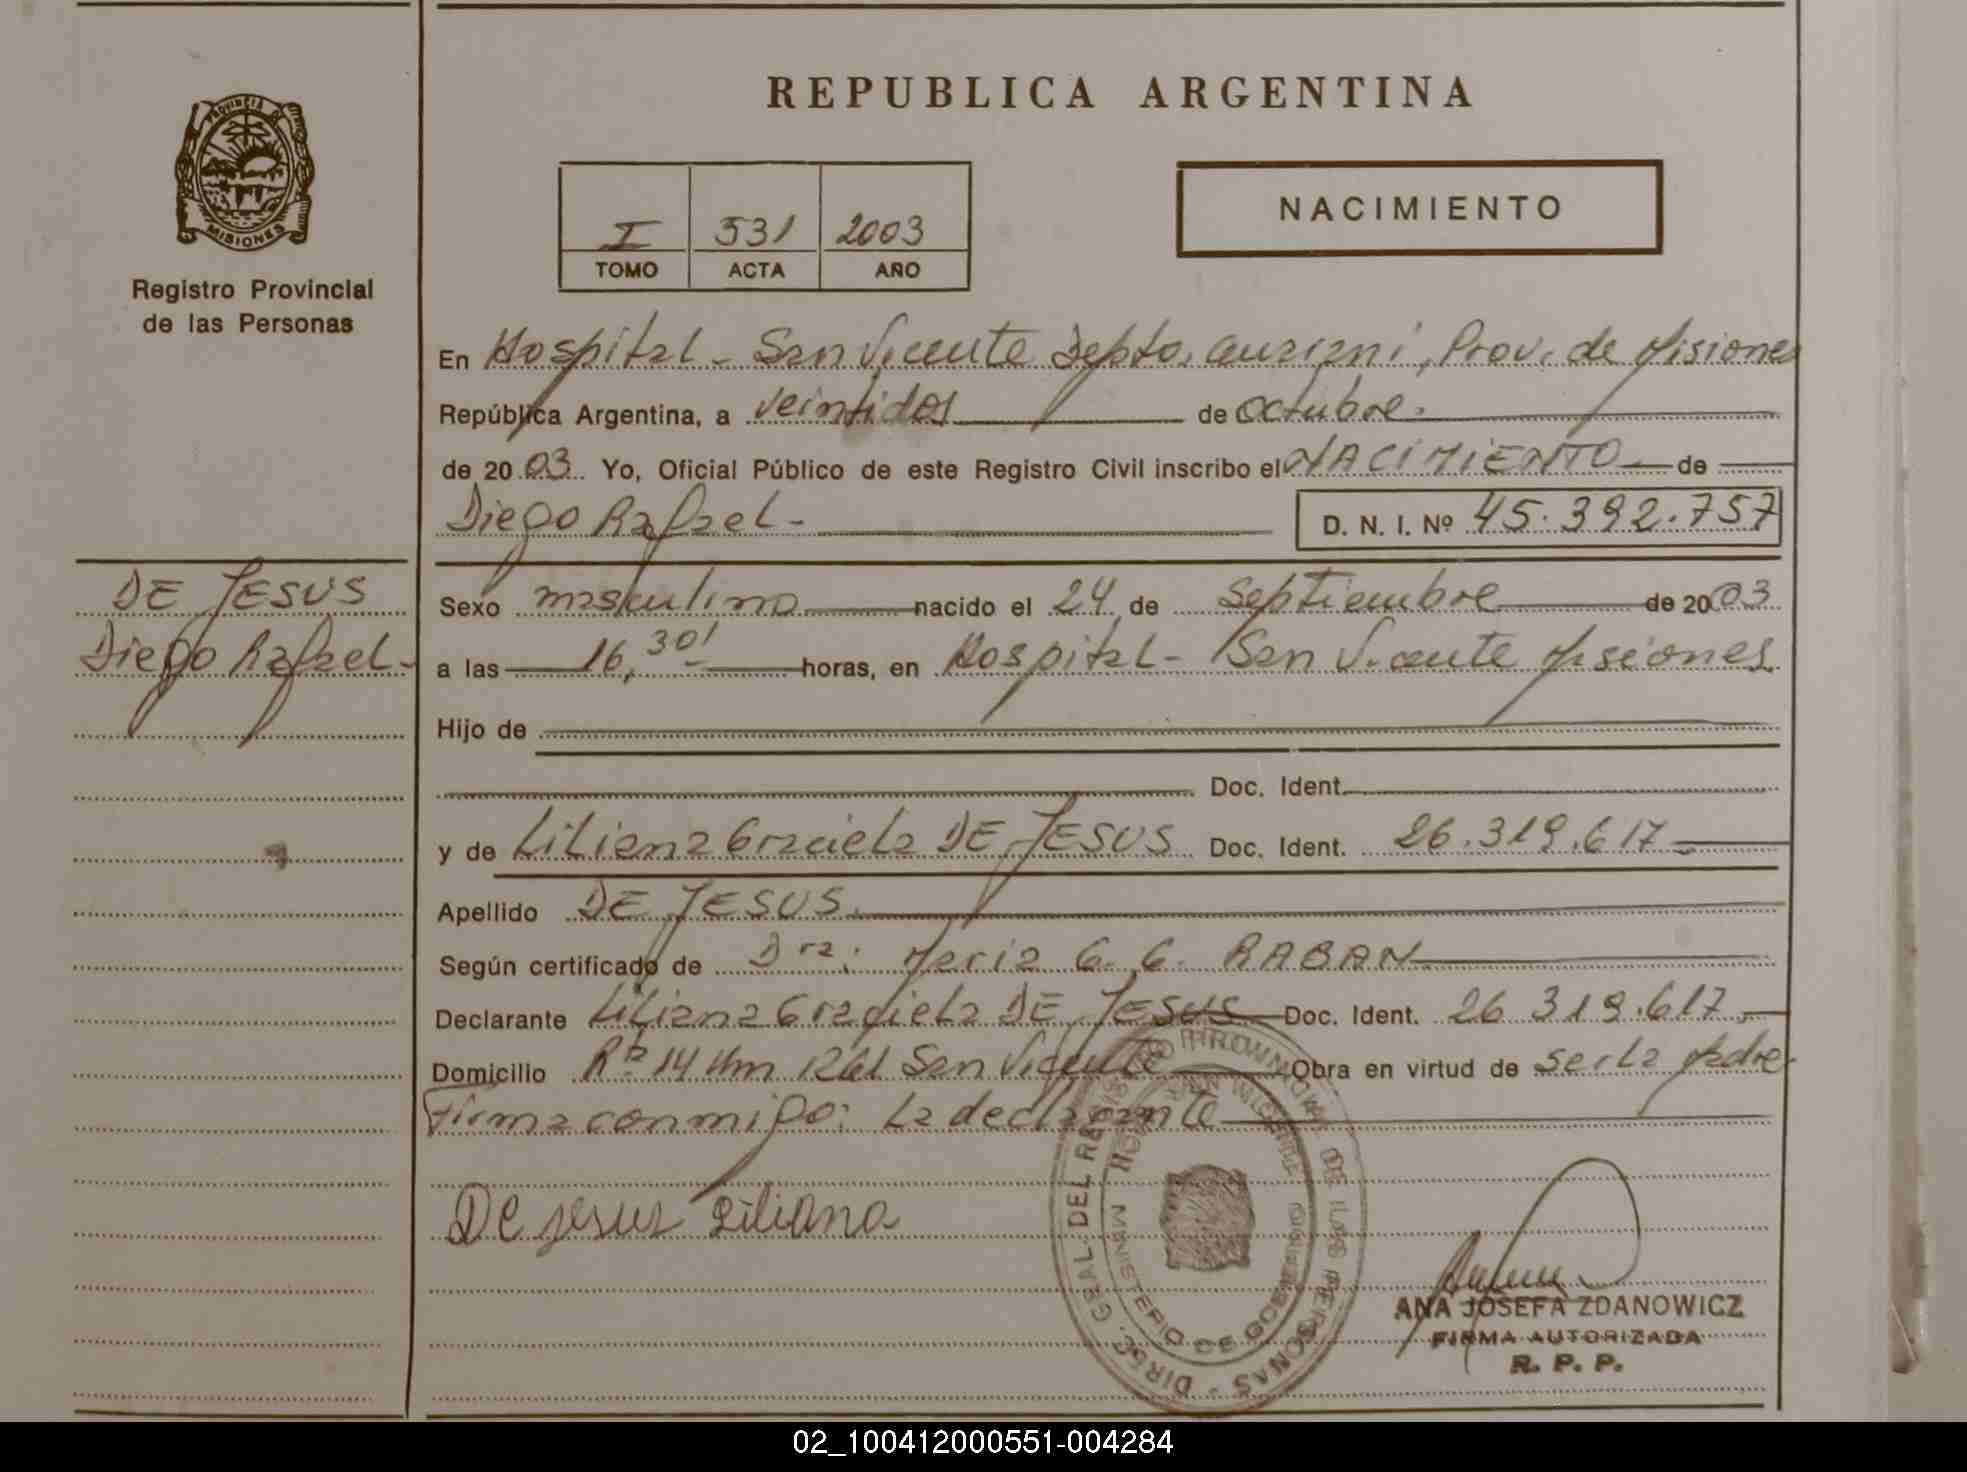 PROVINCIA DE
MISIONES
Registro Provincial
de las Personas
DE JESUS
Diego Rafael-
REPUBLICA ARGENTINA
I 531 2003
TOMO ACTA AÑO
NACIMIENTO
En Hospital - San Vicente Depto. Guarani, Prov. de Misiones
República Argentina, a veintidos de octubre.
de 2003 Yo, Oficial Público de este Registro Civil inscribo el NACIMIENTO de
Diego Rafael - D. N. I. Nº 45.392.757
Sexo masculino nacido el 24 de Septiembre de 2003
a las 16,30' horas, en Hospital - San Vicente Misiones
Hijo de
Doc. Ident.
y de Liliana Graciela DE JESUS Doc. Ident. 26.319.617
Apellido DE JESUS
Según certificado de Dra: Maria G. G. RABAN
Declarante Liliana Graciela DE JESUS Doc. Ident. 26.319.617
Domicilio Rta 14 Km 1261 San Vicente Obra en virtud de ser la Madre-
Firma conmigo: La declarante
De jesus Liliana
DIREC. GRAL. DEL REGISTRO PROVINCIAL DE LAS PERSONAS
MINISTERIO DE GOBIERNO
ANA JOSEFA ZDANOWICZ
FIRMA AUTORIZADA
R. P. P.
02_100412000551-004284